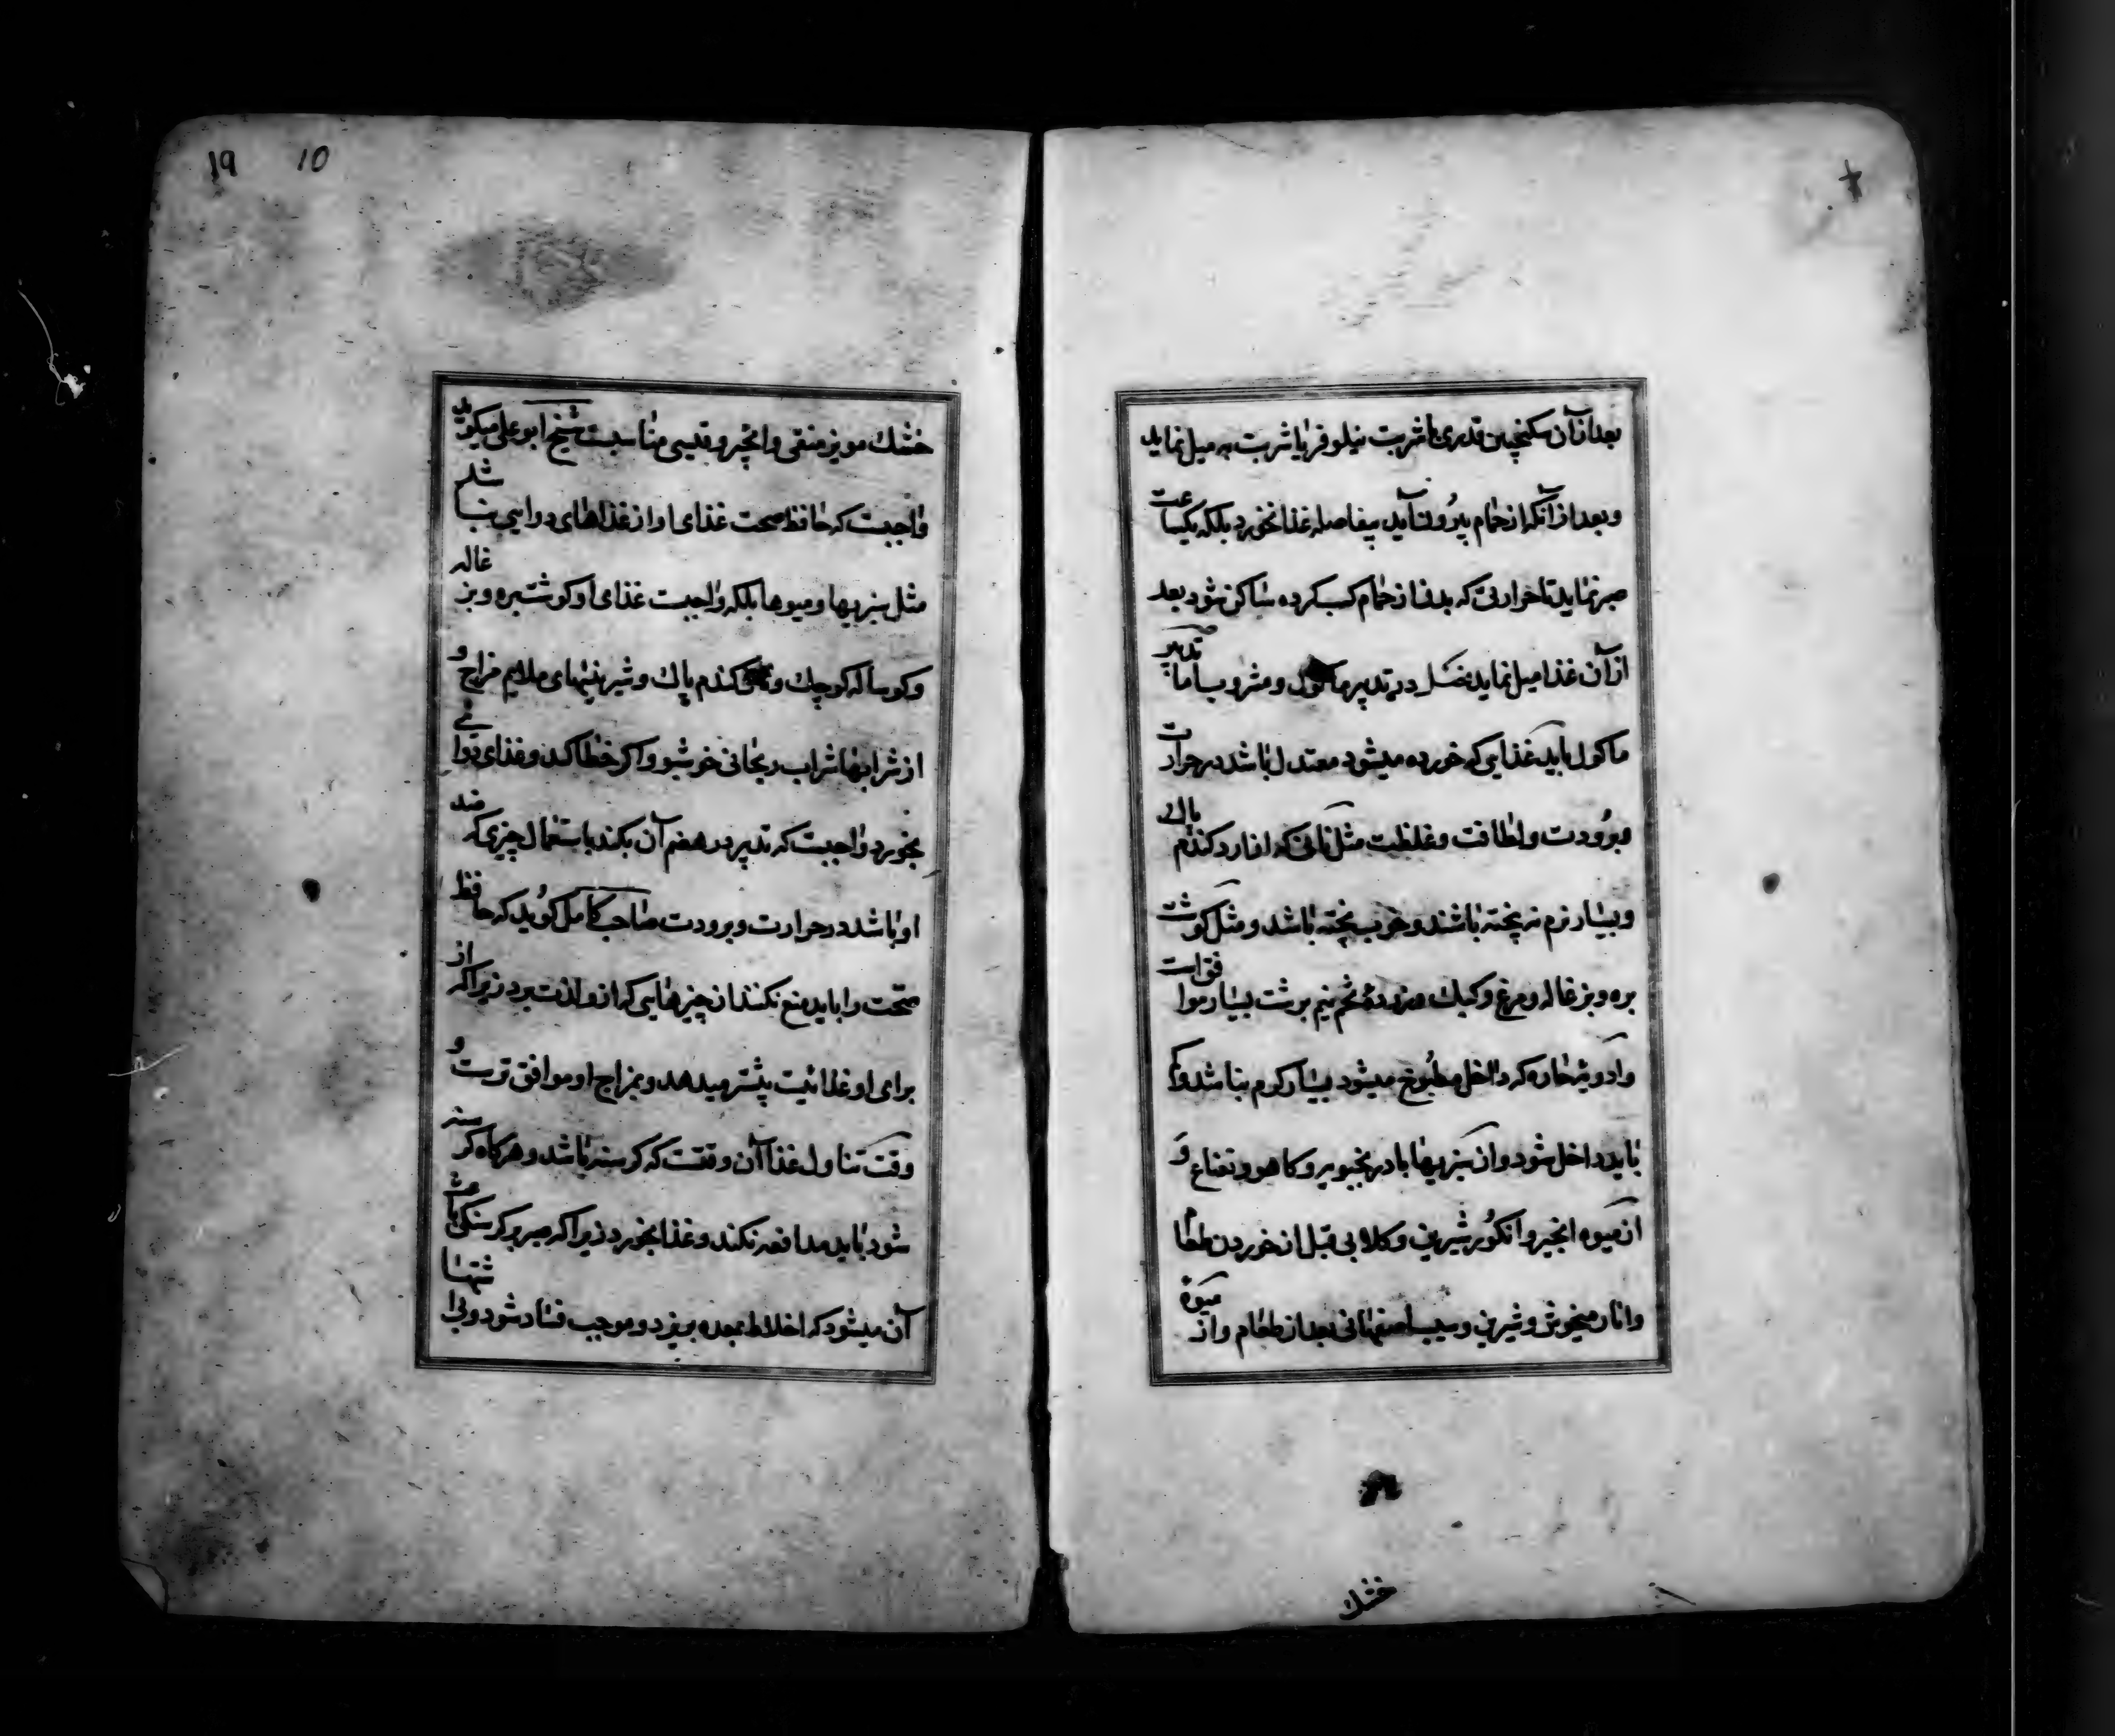 بعد از آن سکنجبین قدری با شربت نیلوفر یا شربت به میل نماید
و بعد از آنکه از حمام بیرون آید بیفاصله غذا نخورد بلکه یکساعت
صبر نماید تا حرارتی که بدن از حمام کسب کرده ساکن شود بعد
از آن غذا میل نماید فصل در تدبیر ماکول و مشروب اما تدبیر
ماکول باید غذایی که خورده میشود معتدل باشد در حرارت
و برودت و لطافت و غلظت مثل نانی که از آرد کندم پاک
و بسیار نرم نه پخته باشند و خوب پخته باشد و مثل کوشت
بره و بزغاله و مرغ و کبک و زرده تخم نیم برشت بسیار موافق است
و ادویه حاره که داخل مطبوخ میشود بسیار کرم نباشد و
باید داخل شود و از سبزیها بادرنجبویه و کاهو و نعناع و
از میوه انجیر و انکور شیرین و کلابی قبل از خوردن طعام
و انار میخوش و شیرین و سیب اصفهانی بعد از طعام و از میوه
خشک
19 10
خشک مویز منقی و انجیر و قیسی مناسبست شیخ ابو علی میکوید
واجبست که حافظ صحت غذای او از غذاهای دوایی نباشد
مثل سبزیها و میوها بلکه واجبست غذای او کوشت بره و بزغاله
و کوساله کوچک و کندم پاک و شیرینیهای ملایم مزاج و
از شرابها شراب ریحانی خوشبو و اکر خطا کند و غذای دوایی
بخورد واجبست که تدبیر در هضم آن بکند باستعمال چیزی که ضد
او باشد در حرارت و برودت صاحب کامل کوید که حافظ
صحت را باید منع نکنند از چیزهایی که از و لذت برد زیرا که از
برای او غذائیت بیشتر میدهد و بمزاج او موافق ترست و
وقت تناول غذا آن وقتست که کرسنه باشد و هرکاه کرسنه
شود باید مدافعه نکند و غذا بخورد زیرا که صبر بر کرسنکی باعث
آن میشود که اخلاط بمعده بریزد و موجب فساد شود و بی اشتها